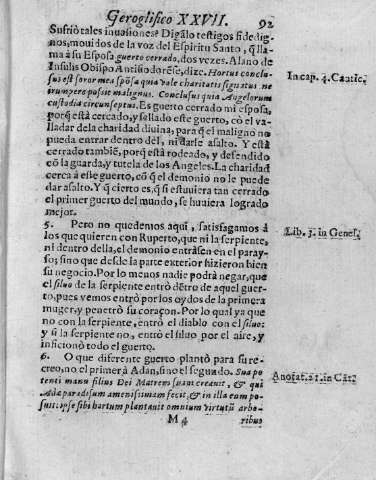 Geroglifico XXVII. 92
Sufriò tales inuasiones? Digãlo testigos fidedig-
nos, mouidos de la voz del Espiritu Santo, q̃ lla-
ma à su Esposa guerto cerrado, dos vezes. Alano de
Insulis Obispo Antisiodorẽse, dize. Hortus conclu-
sus est soror mea spõsa quia vale charitatis signatus ne
irrumpere possit malignus. Conclusus quia Angelorum
custodia circunseptus. Es guerto cerrado mi esposa,
porq̃ està cercado, y sellado este guerto, cõ el va-
lladar de la charidad diuina, para q̃ el maligno no
pueda entrar dentro dèl, ni darle asalto. Y està
cerrado tambiẽ, porq̃ està rodeado, y defendido
cõ la guarda, y tutela de los Angeles. La charidad
cerca à este guerto, cõ q̃ el demonio no le pue-
de dar asalto. Y q̃ cierto es, q̃ si estuuiera tan cerrado
el primer guerto del mundo, se huuiera logrado
mejor.
5. Pero no quedemos aqui, satisfagamos à
los que quieren con Ruperto, que ni la serpiente,
ni dentro della, el demonio entràsen en el paray-
so; sino que desde la parte exterior hizieron bien
su negocio. Por lo menos nadie podrà negar, que
el siluo de la serpiente entrò dẽtro de aquel guer-
to, pues vemos entrò por los oydos de la primera
muger, y penetrò su coraçon. Por lo qual ya que
no con la serpiente, entrò el diablo con el siluo:
y si la serpiente no, entrò el siluo por el aire, y
inficionò todo el guerto.
6. O que diferente guerto plantò para su re-
creo, no el primer Adàn, sino el segundo. Sua po-
tenti manu filius Dei Matrem suam creauit, & qui
Adæ paradisum amenissimam fecit, & in illa com po-
suit: ipse sibi hortum plantauit omnium virtutũ arbo-
M 4 ribus
In cap. 4. Cãtic.
Lib. 3. in Genes.
Anotat. 21. in Cãt.